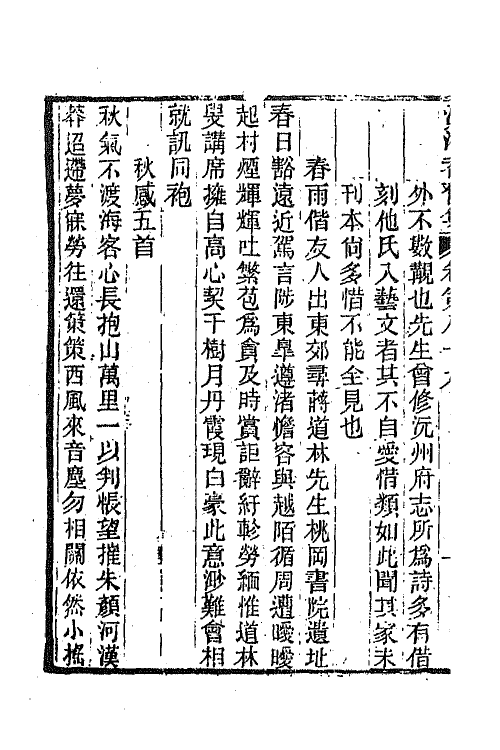 外不數觀也先生曾修沅州府志所爲詩多有借
刻他氏入藝文者其不自愛惜類如此聞其家未
刊本尙多惜不能全見也
春雨偕友人出東郊尋蔣道林先生桃岡書院遺址
春日豁遠近駕言陟東臯遵渚憺容與越陌循周遭曖曖
起村煙輝輝吐繁苞爲貪及時賞詎辭紆軫勞緬惟道林
叟講席擁自高心契千樹月丹霞現白豪此意渺難會相
就訊同袍
秋感五首
秋氣不渡海客心長抱山萬里一以判悵望摧朱顏河漢
莽迢遞夢寐勞往還策策西風來音塵勿相關依然小搖